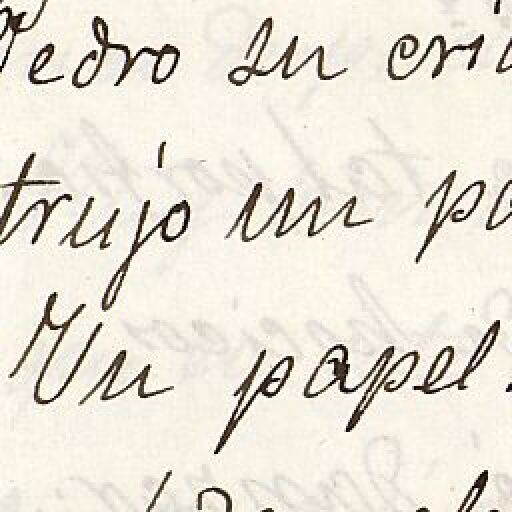 Pedro su cri
trujo un pa
Un papel.